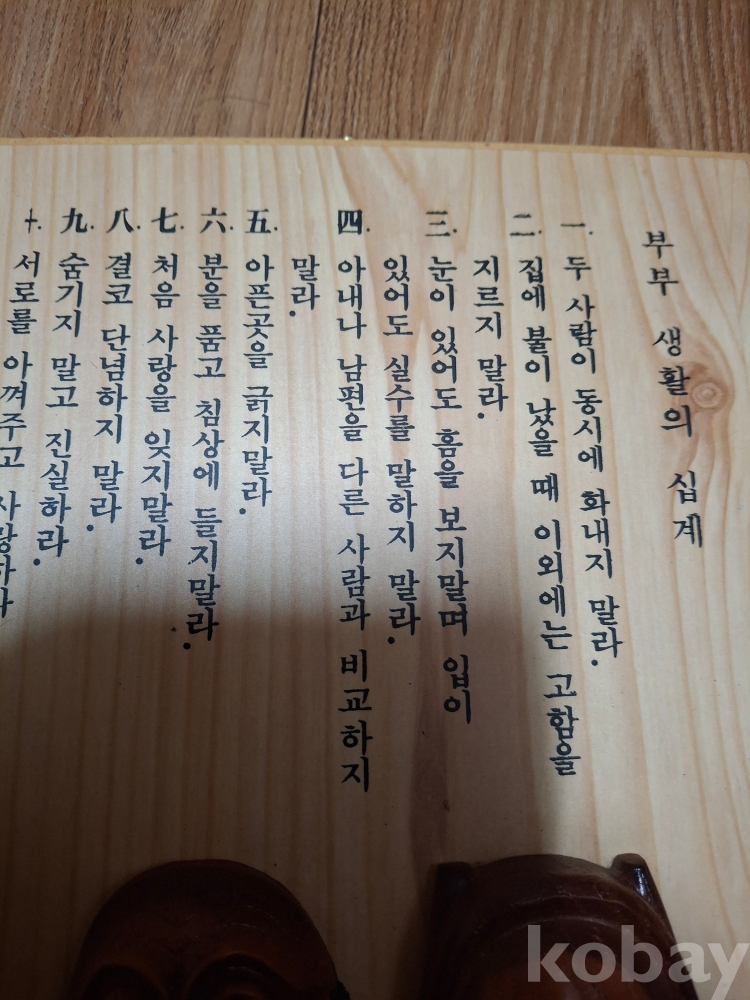 부부 생활의 십계
一. 두 사람이 동시에 화내지 말라.
二. 집에 불이 났을 때 이외에는 고함을
지르지 말라.
三. 눈이 있어도 흠을 보지말며 입이
있어도 실수를 말하지 말라.
四. 아내나 남편을 다른 사람과 비교하지
말라.
五. 아픈곳을 긁지말라.
六. 분을 품고 침상에 들지말라.
七. 처음 사랑을 잊지말라.
八. 결코 단념하지 말라.
九. 숨기지 말고 진실하라.
十. 서로를 아껴주고 사랑하라
kobay